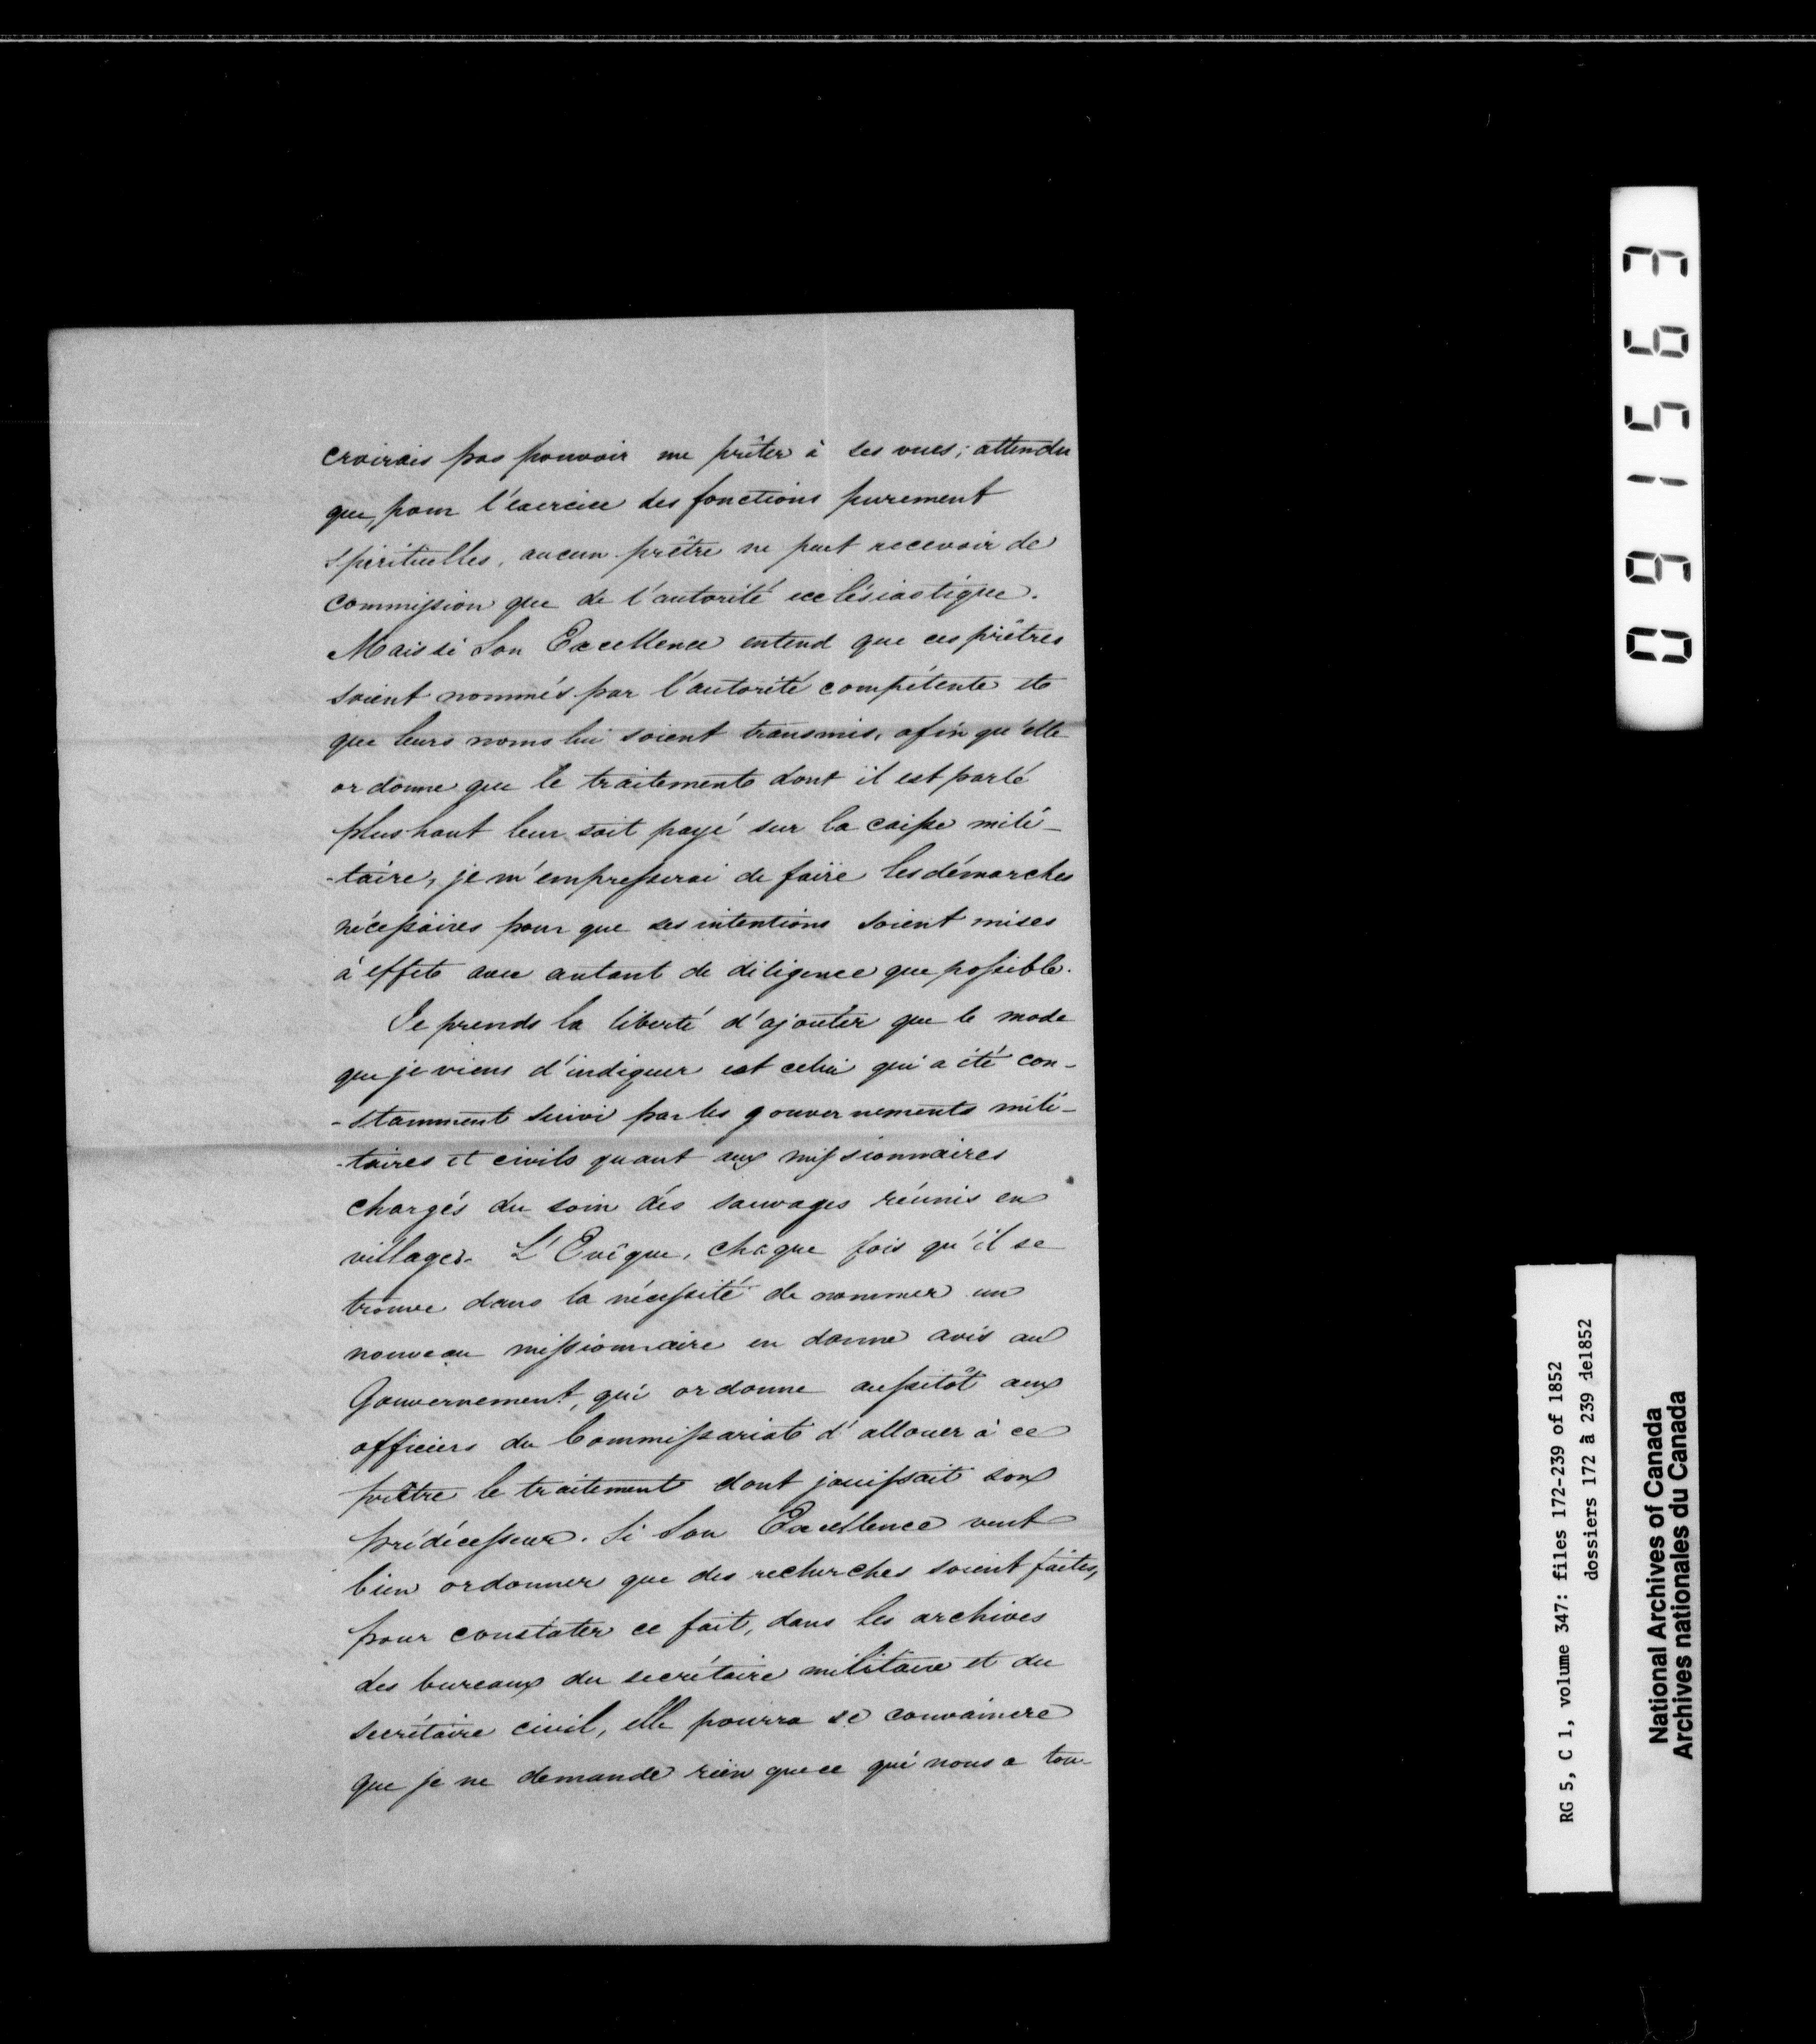 croirais pas pouvoir me prêter à ses vues; attendu
que, pour l'exercice des fonctions purement
spirituelles, aucun prêtre ne peut recevoir de
commission que de l'autorité ecclésiastique.
Mais si Son Excellence entend que ces prêtres
soient nommés par l'autorité compétente et
que leurs noms lui soient transmis, afin qu'elle
ordonne que le traitement dont il est parlé
plus haut leur soit payé sur la caisse mili-
-taire, je m'empresserai de faire les démarches
nécessaires pour que ses intentions soient mises
à effet avec autant de diligence que possible.
Je prends la liberté d'ajouter que le mode
que je viens d'indiquer est celui qui a été con-
-stamment suivi par les gouvernements mili-
-taires et civils quant aux missionnaires
chargés du soin des sauvages réunis en
villages. L'Evêque, chaque fois qu'il se
trouve dans la nécessité de nommer un
nouveau missionnaire en donne avis au
Gouvernement, qui ordonne aussitôt aux
officiers du Commissariat d'allouer à ce
prêtre le traitement dont jouissait son
prédécesseur. Si Son Excellence veut
bien ordonner que des recherches soient faites,
pour constater ce fait, dans les archives
des bureaux du secrétaire militaire et du
secrétaire civil, elle pourra se convaincre
que je ne demande rien que ce qui nous a tou-
091563
RG 5, C 1, volume 347: files 172-239 of 1852
dossiers 172 à 239 de1852
National Archives of Canada
Archives nationales du Canada